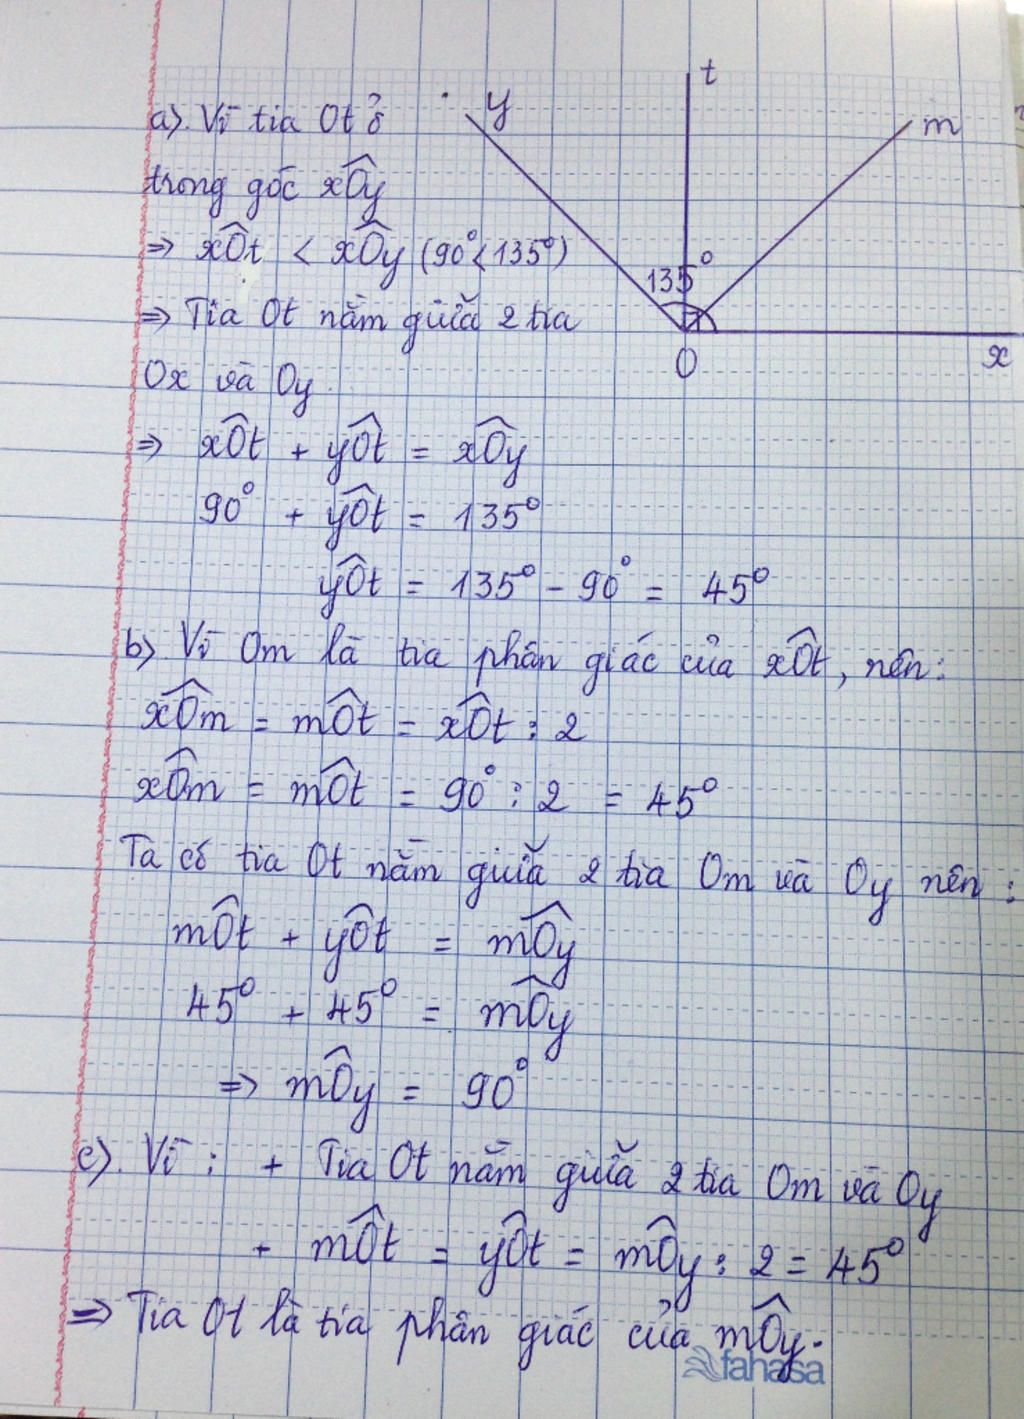 a). Vì tia Ot ở
trong góc xÔy
⇒ xÔt < xÔy (90° < 135°)
⇒ Tia Ot nằm giữa 2 tia
Ox và Oy.
⇒ xÔt + yÔt = xÔy
90° + yÔt = 135°
yÔt = 135° - 90° = 45°
y
t
m
135°
O
x
b) Vì Om là tia phân giác của xÔt, nên:
xÔm = mÔt = xÔt : 2
xÔm = mÔt = 90° : 2 = 45°
Ta có tia Ot nằm giữa 2 tia Om và Oy nên :
mÔt + yÔt = mÔy
45° + 45° = mÔy
⇒ mÔy = 90°
c). Vì : + Tia Ot nằm giữa 2 tia Om và Oy
+ mÔt = yÔt = mÔy : 2 = 45°
⇒ Tia Ot là tia phân giác của mÔy.
fahasa